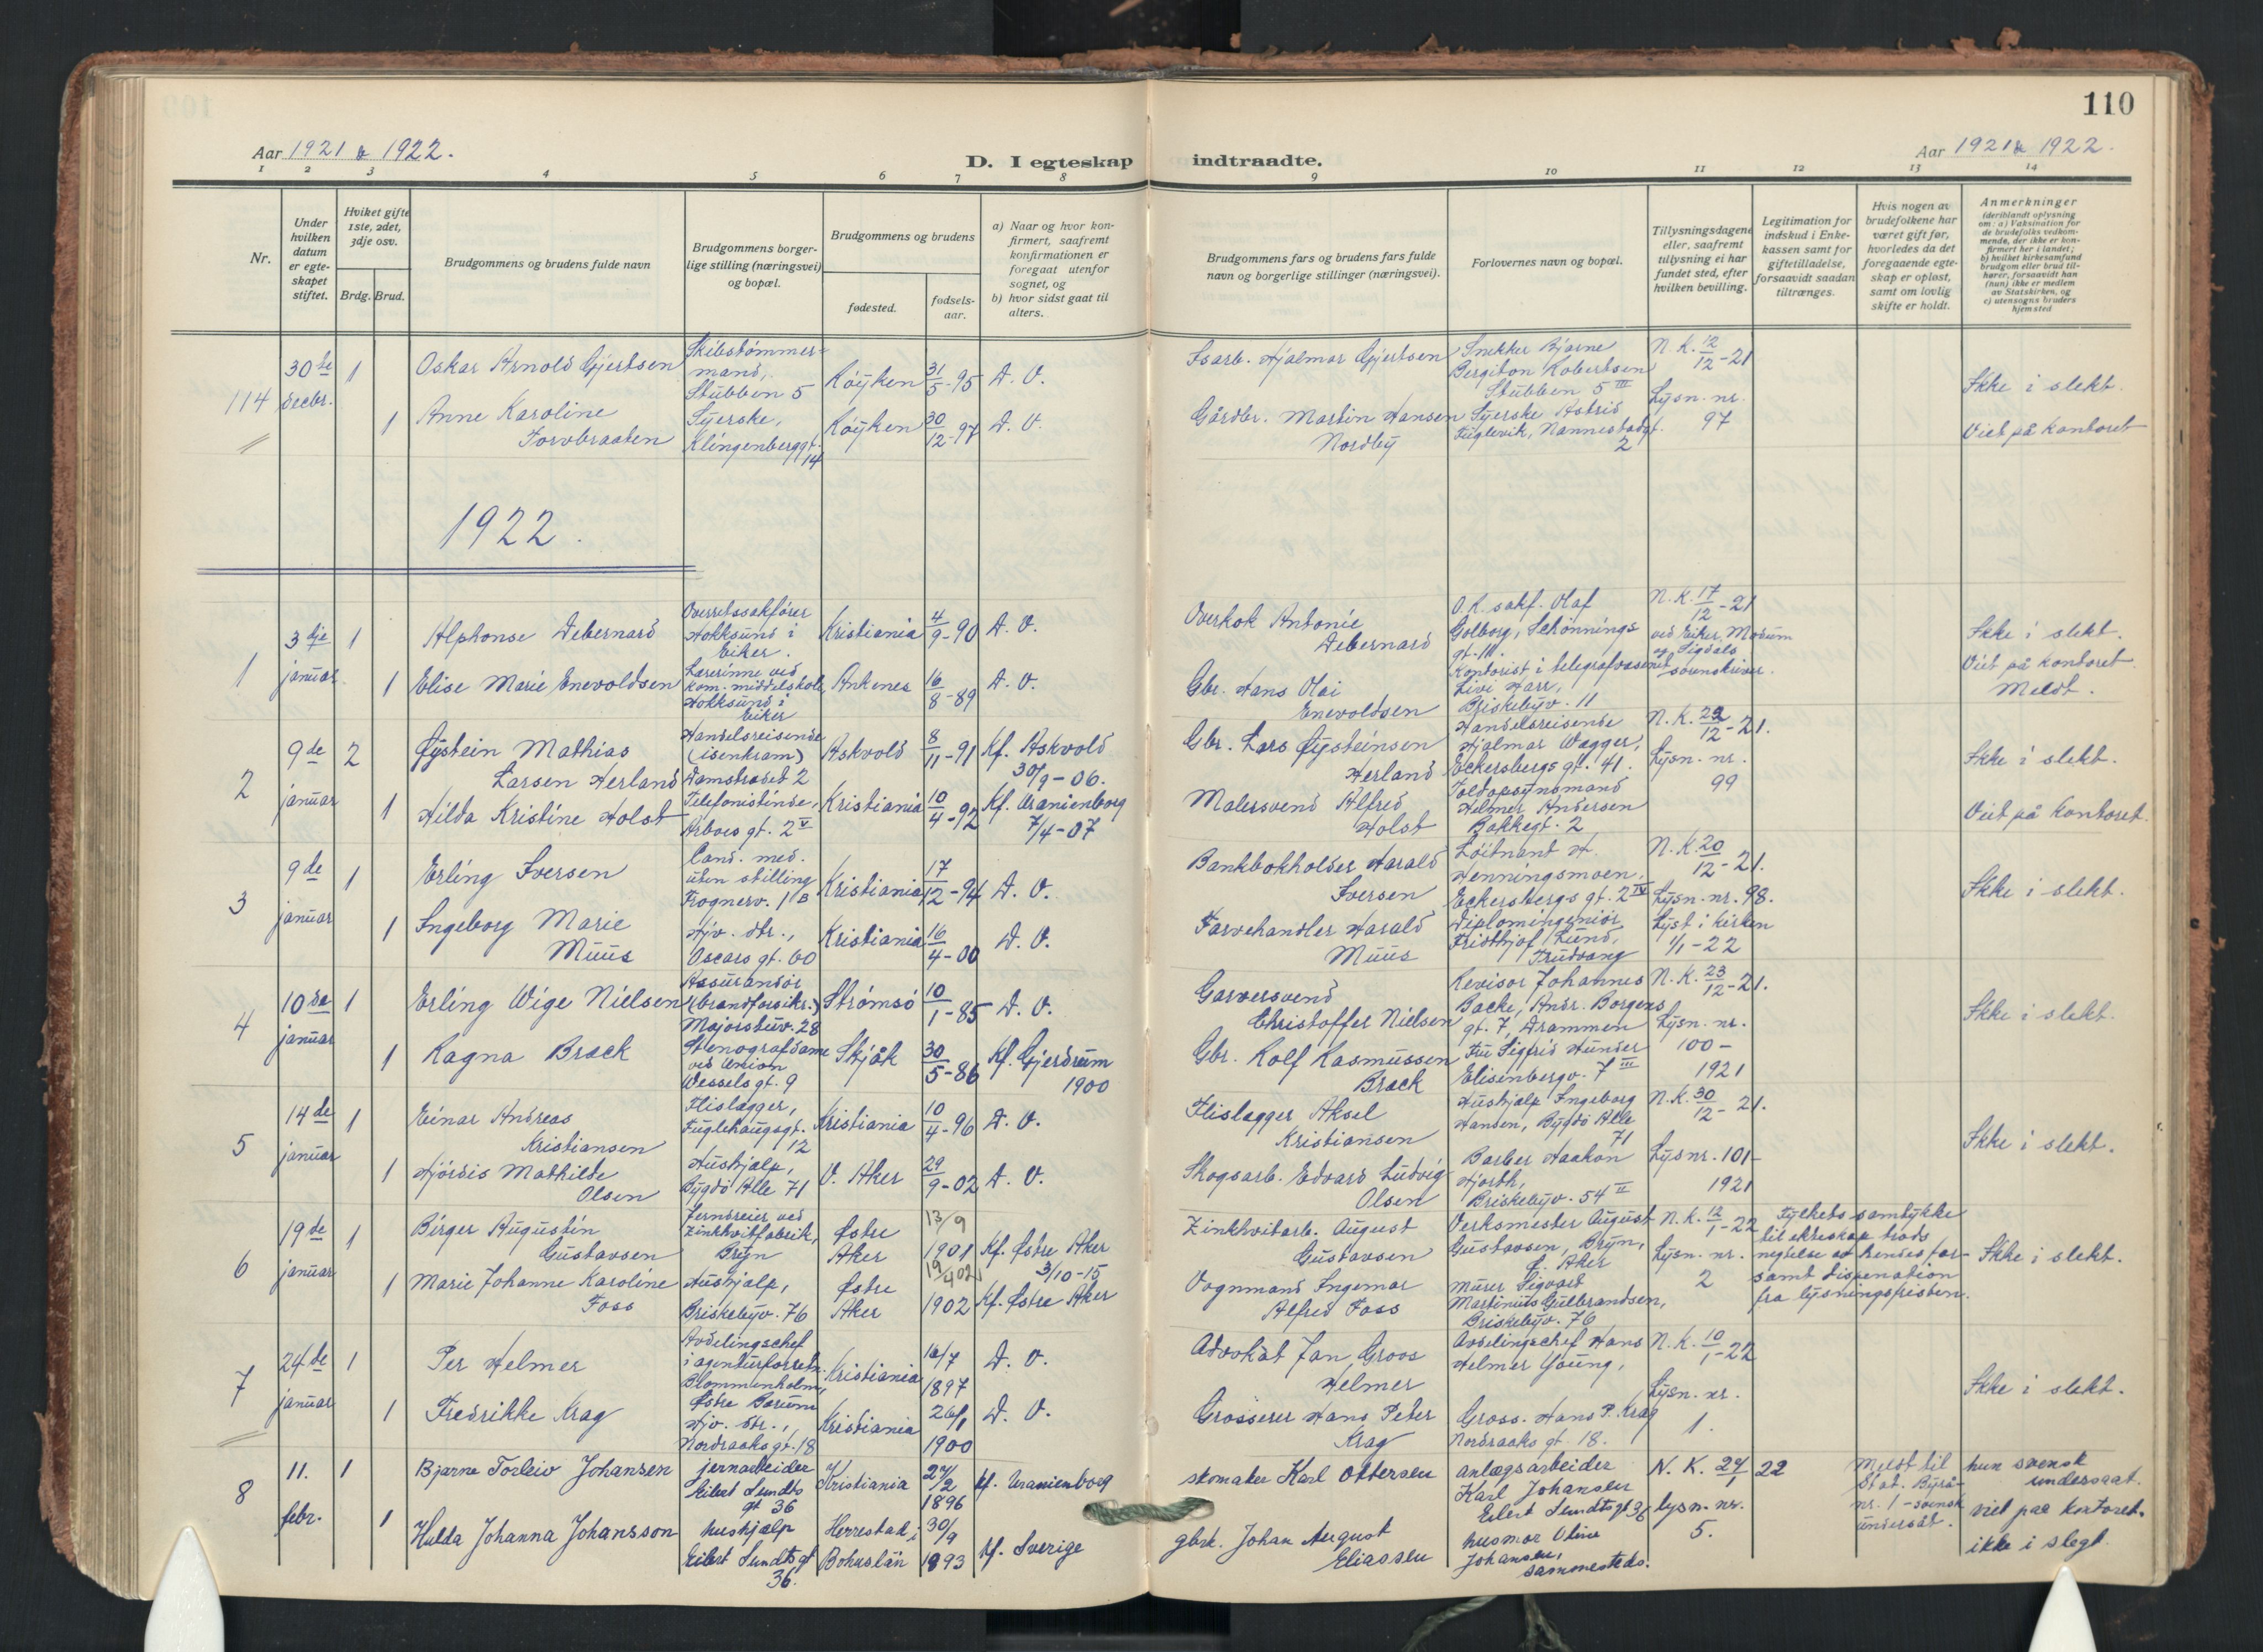 110
Aar 1921 & 1922.
D. I egteskap indtraadte.
Aar 1921 & 1922.
1 2 3 4 5 6 7 8 9 10 11 12 13 14
Nr.
Under
hvilken
datum
er egte-
skapet
stiftet.
Hviket gifte
1ste, 2det,
3dje osv.
Brdg. Brud.
Brudgommens og brudens fulde navn
Brudgommens borger-
lige stilling (næringsvei)
og bopæl.
Brudgommens og brudens
fødested.
fødsels-
aar.
a) Naar og hvor kon-
firmert, saafremt
konfirmationen er
foregaat utenfor
sognet, og
b) hvor sidst gaat til
alters.
Brudgommens fars og brudens fars fulde
navn og borgerlige stillinger (næringsvei).
Forlovernes navn og bopæl.
Tillysningsdagene
eller, saafremt
tillysning ei har
fundet sted, efter
hvilken bevilling.
Legitimation for
indskud i Enke-
kassen samt for
giftetilladelse,
forsaavidt saadan
tiltrænges.
Hvis nogen av
brudefolkene har
været gift før,
hvorledes da det
foregaaende egte-
skap er opløst,
samt om lovlig
skifte er holdt.
Anmerkninger
(deriblandt oplysning
om: a) Vaksination for
de brudefolks vedkom-
mende, der ikke er kon-
firmert her i landet;
b) hvilket kirkesamfund
brudgom eller brud til-
hører, forsaavidt han
(hun) ikke er medlem
av Statskirken, og
c) utensogns bruders
hjemsted
114
30te
decbr.
1
Oskar Arnold Gjertsen
Skibstømmer-
mand,
Stubben 5
Røyken
31/5-95
D. V.
Fsarb. Hjalmar Gjertsen
Snekker Bjarne
Bergiton Robertsen
Stubben 5 III
N. K. 12/12-21
Lysn. nr.
97
Ikke i slekt.
Viet på kontoret
1
Anne Karoline
Torvbraaten
Syerske,
Klingenberggt.
14
Røyken
30/12-97
D. V.
Gårdbr. Martin Hansen
Nordby
Syerske Astrid
Fuglevik, Nannestadgt.
2
1922.
1
3dje
januar
1
Alphonse Debernard
Overretssakfører
Hokksund i
Eiker.
Kristiania
4/9-90
D. V.
Overkok Antonie
Debernard
O.R. sakf. Olaf
Golborg, Schønnings
gt. 11.
N. K. 17/12-21
ved Eiker, Modum
og Sigdals
sorenskriver.
Ikke i slekt.
Viet på kontoret
Meldt.
1
Elise Marie Enevoldsen
Lærerinne ved
kom. middelskole,
Hokksund i
Eiker
Ankenes
16/8-89
D. V.
Gbr. Hans Olai
Enevoldsen
Kontorist i telegrafvæsenet
Livi Harr,
Briskebyv. 11
2
9de
januar
2
Øystein Mathias
Larsen Herland
Handelsreisende
(isenkram)
Damstredet 2
Askvold
8/11-91
Kf. Askvold
30/9-06.
Gbr. Lars Øysteinsen
Herland
Handelsreisende
Hjalmar Wegger,
Eckersbergs gt. 41.
N. K. 22/12-21.
Lysn. nr.
99
Ikke i slekt.
Viet på kontoret.
1
Hilda Kristine Holst
Telefonistinde,
Arboes gt. 2 V
Kristiania
10/4-92
Kf. Uranienborg
7/4-07
Malersvend Alfred
Holst
Toldopsynsmand
Helmer Andersen
Bakkegt. 2
3
9de
januar
1
Erling Iversen
Cand. med.
uten stilling
Frognerv. 1 B
Kristiania
17/12-94
D. V.
Bankbokholder Harald
Iversen
Løitnant H.
Henningsmoen,
Eckersbergs gt. 2 IV
N. K. 20/12-21.
Lysn. nr. 98.
Lyst i kirken
1/1-22
Ikke i slekt.
1
Ingeborg Marie
Muus
Hjv. dtr.,
Oscars gt. 60
Kristiania
16/4-00
D. V.
Farvehandler Harald
Muus
Diplomingeniør
Fridthjof Lund,
Trudvang
4
10de
januar
1
Erling Wige Nielsen
Assurandør
(brandforsikr.)
Majorstuv. 28
Strømsø
10/1-85
D. V.
Garversvend
Christoffer Nielsen
Revisor Johannes
Backe, Andr. Borgens
gt. 7, Drammen
N. K. 23/12-21.
Lysn. nr.
100-
1921
Ikke i slekt.
1
Ragna Bræck
Stenografdame
ved Union
Wessels gt. 9
Skjåk
30/5-86
Kf. Gjerdrum
1900
Gbr. Rolf Rasmussen
Bræck
Fru Sigfrid Hunder
Elisenbergv. 7 III
5
14de
januar
1
Einar Andreas
Kristiansen
Fliselægger,
Fuglehaugsgt.
12
Kristiania
10/4-96
D. V.
Fliselægger Aksel
Kristiansen
Hushjælp Ingeborg
Hansen, Bygdø Alle
71
N. K. 30/12-21.
Lysnr. 101-
1921
Ikke i slekt.
1
Hjørdis Mathilde
Olsen
Hushjælp,
Bygdø Alle 71
V. Aker
29/9-02
D. V.
Skogsarb. Edvard Ludvig
Olsen
Barber Haakon
Hjorth,
Briskebyv. 54 II
6
19de
januar
1
Birger Augustin
Gustavsen
Jerndreier ved
Zinkhvitfabrik,
Bryn
Østre
Aker
13/9
1901
Kf. Østre Aker
3/10-15
Zinkhvitarb. August
Gustavsen
Verksmester August
Gustavsen, Bryn,
Ø. Aker
N. K. 12/1-22
Lysn. nr.
2
Fylkets samtykke
til ekteskap trods
negtelse av hendes far-
samt dispensation
fra lysningsfristen.
Ikke i slekt.
1
Marie Johanne Karoline
Foss
Hushjælp,
Briskebyv. 76
Østre
Aker
1902
Kf. Østre Aker
Vognmand Ingemar
Alfred Foss
Murer Sigvart
Martinius Gulbrandsen,
Briskebyv. 76
7
24de
januar
1
Per Helmer
Avdelingschef
i agenturforretn.
Blommenholm,
Østre Bærum
Kristiania
16/7
1897
D. V.
Advokat Jan Groos
Helmer
Avdelingschef Hans
Helmer Young,
N. K. 10/1-22
Lysn. nr.
1.
Ikke i slekt.
1
Fredrikke Krag
Hjv. dtr.,
Nordraaks gt. 18
Kristiania
26/1
1900
D. V.
Grosserer Hans Peter
Krag
Gross. Hans P. Krag
Nordraaks gt. 18.
8
11.
febr.
1
Bjarne Torleiv Johansen
jernarbeider
Eilert Sundts
gt 36
Kristiania
24/2
1896
kf. Uranienborg
skomaker Karl Ottersen
anlægsarbeider
Karl Johansen
Eilert Sundts gt 36
N. K. 24/1 22
lysn. nr.
5.
Meldt til
Stat. Byrå-
nr. 1 - svensk
undersåt.
hun svensk
undersaat.
viet paa kontoret.
ikke i slegt.
1
Hulda Johanna Johansson
hushjælp
Eilert Sundts gt
36.
Herrestad i
Bohuslän
30/9
1893
kf. Sverige
gbrk. Johan August
Eliassen
husmor Oline
Johansen,
sammesteds.